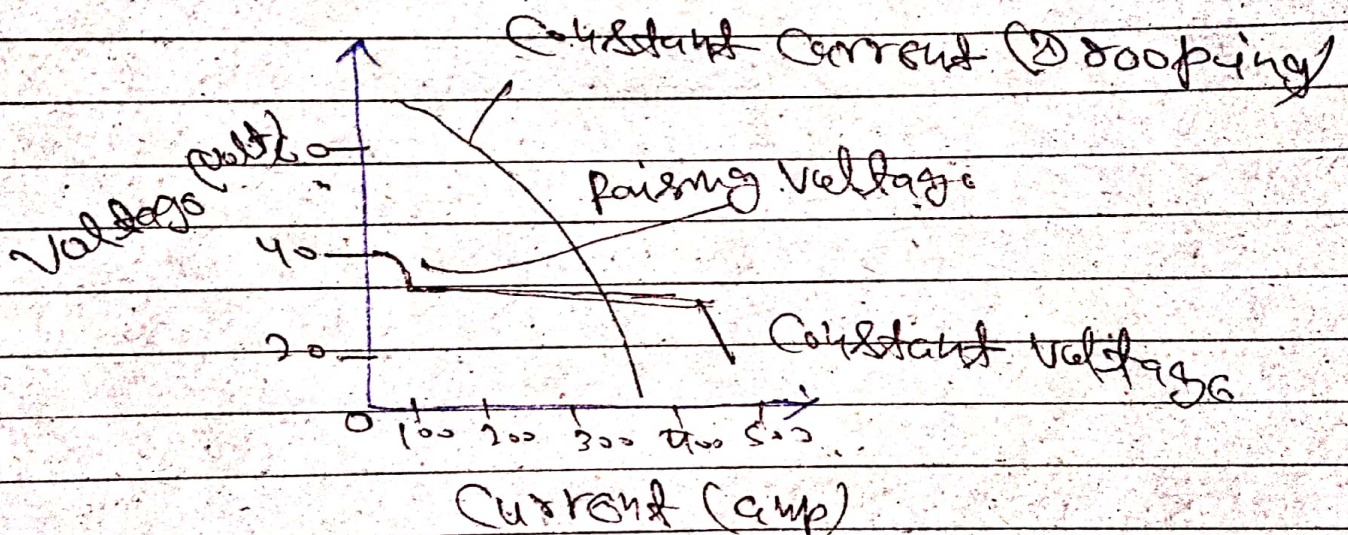 Constant Current (Drooping)
Voltage (volt) 60
Raising Voltage
40
20
Constant Voltage
0 100 200 300 400 500
Current (amp)